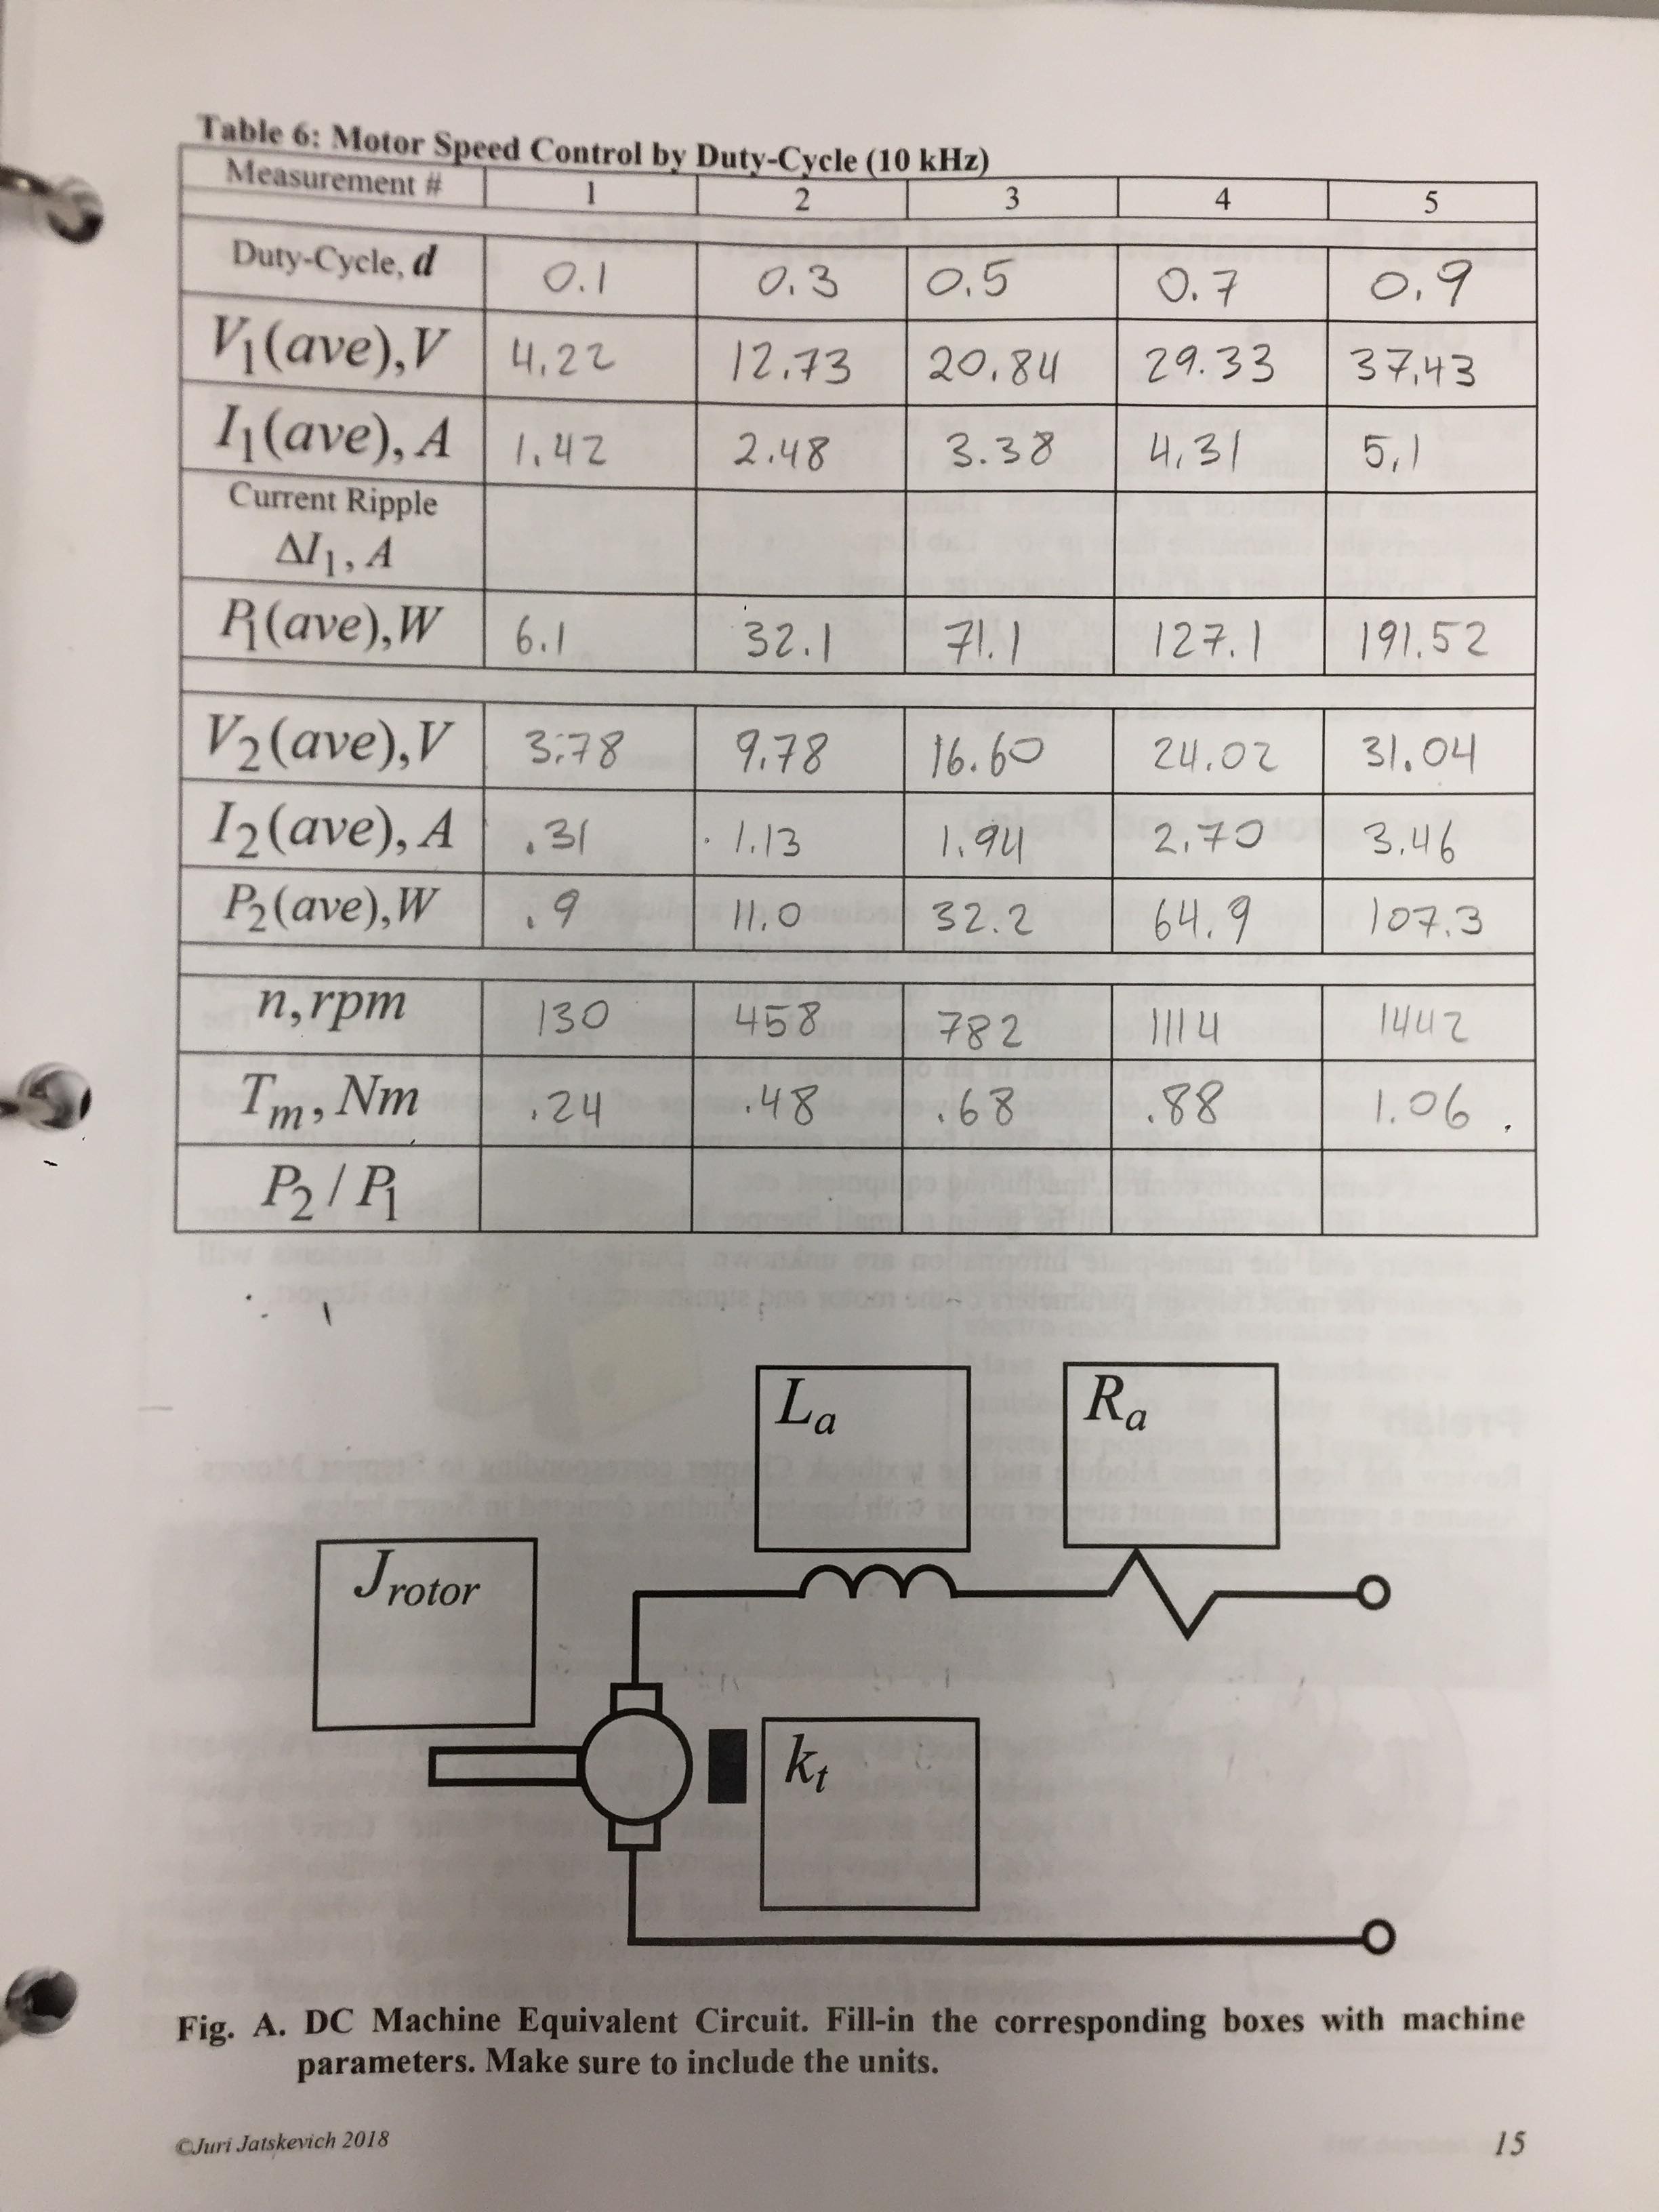 Table 6: Motor Speed Control by Duty-Cycle (10 kHz)
Measurement # 1 2 3 4 5
Duty-Cycle, d 0.1 0.3 0.5 0.7 0.9
V1(ave),V 4.22 12.73 20.84 29.33 37.43
I1(ave), A 1.42 2.48 3.38 4.31 5.1
Current Ripple
ΔI1, A
P1(ave),W 6.1 32.1 71.1 127.1 191.52
V2(ave),V 3.78 9.78 16.60 24.02 31.04
I2(ave), A .31 1.13 1.94 2.70 3.46
P2(ave),W .9 11.0 32.2 64.9 107.3
n,rpm 130 458 782 1114 1442
Tm, Nm .24 .48 .68 .88 1.06
P2 / P1
La Ra
Jrotor
kt
Fig. A. DC Machine Equivalent Circuit. Fill-in the corresponding boxes with machine
parameters. Make sure to include the units.
©Juri Jatskevich 2018 15